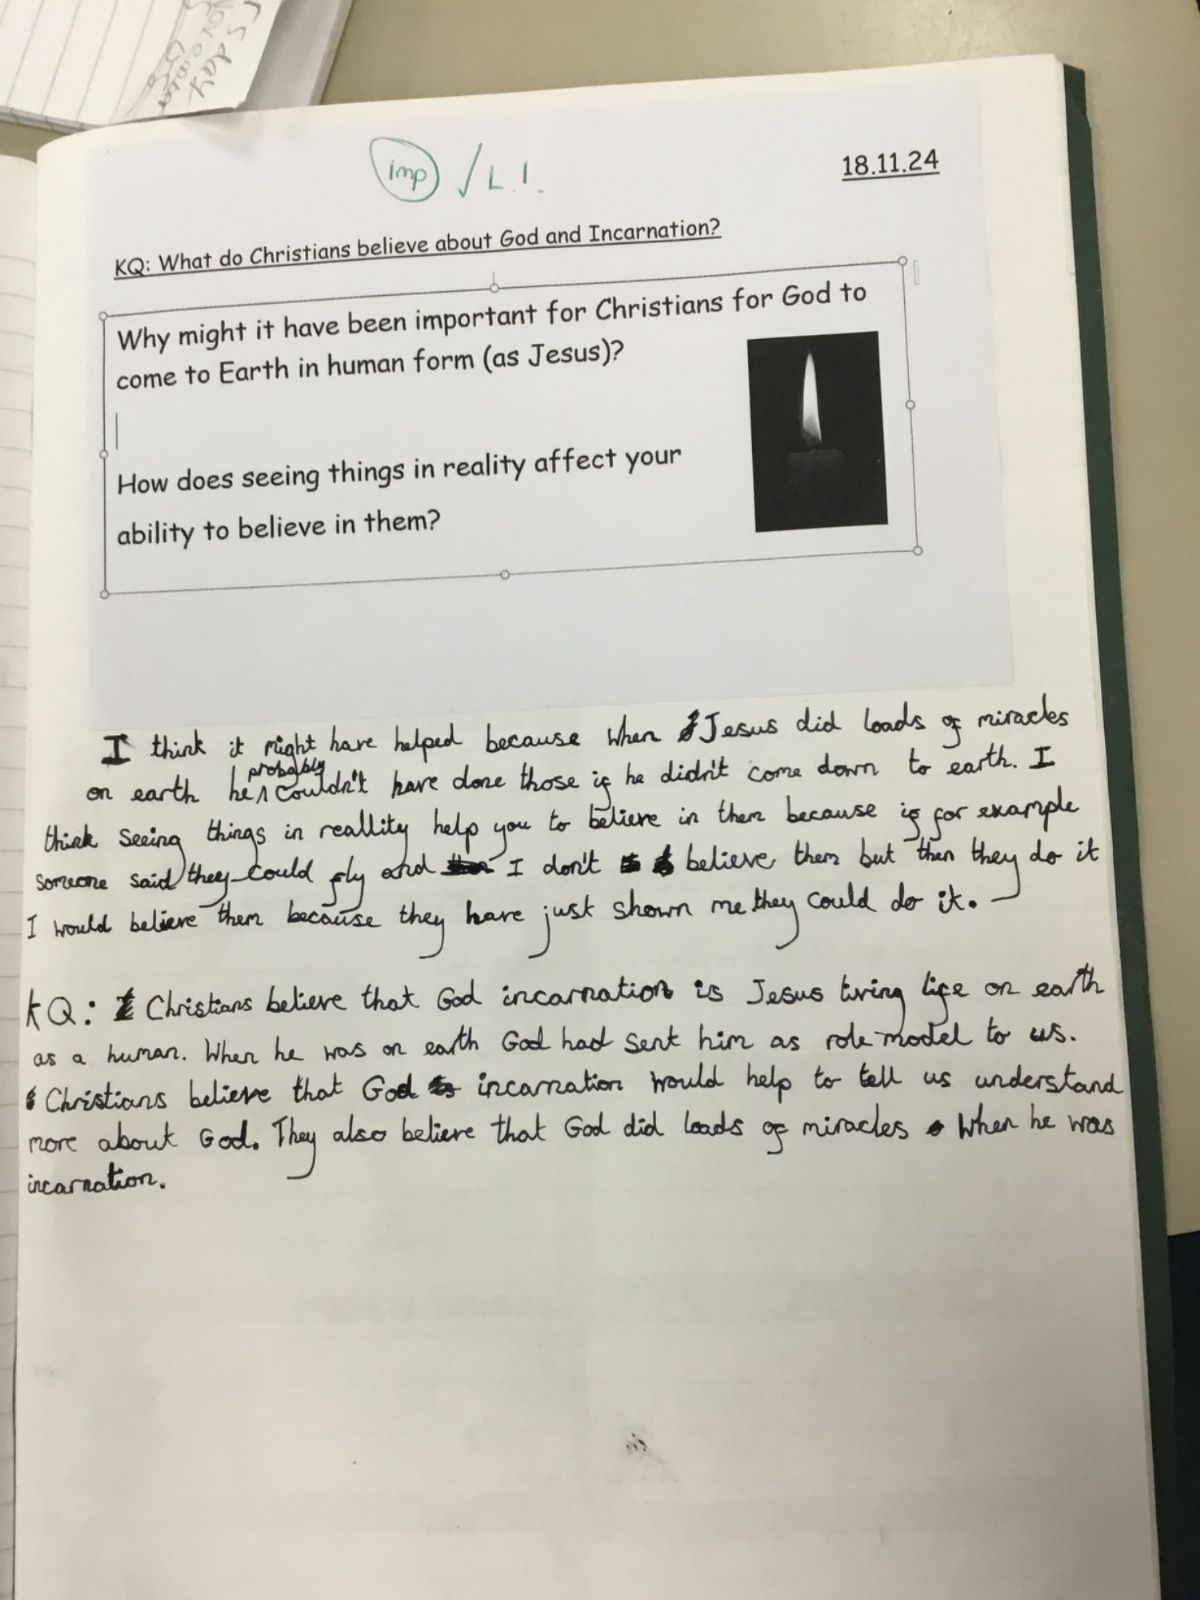 rsday
imp / L.I.
18.11.24
KQ: What do Christians believe about God and Incarnation?
Why might it have been important for Christians for God to
come to Earth in human form (as Jesus)?
How does seeing things in reality affect your
ability to believe in them?
I think it might have helped because when Jesus did loads of miracles
on earth he probably couldn't have done those if he didn't come down to earth. I
think seeing things in reallity help you to believe in them because if for example
someone said they could fly and I don't believe them but then they do it
I would believe them because they have just shown me they could do it.
KQ: Christians believe that God incarnation is Jesus living life on earth
as a human. When he was on earth God had sent him as role model to us.
Christians believe that God incarnation would help to tell us understand
more about God. They also believe that God did loads of miracles when he was
incarnation.